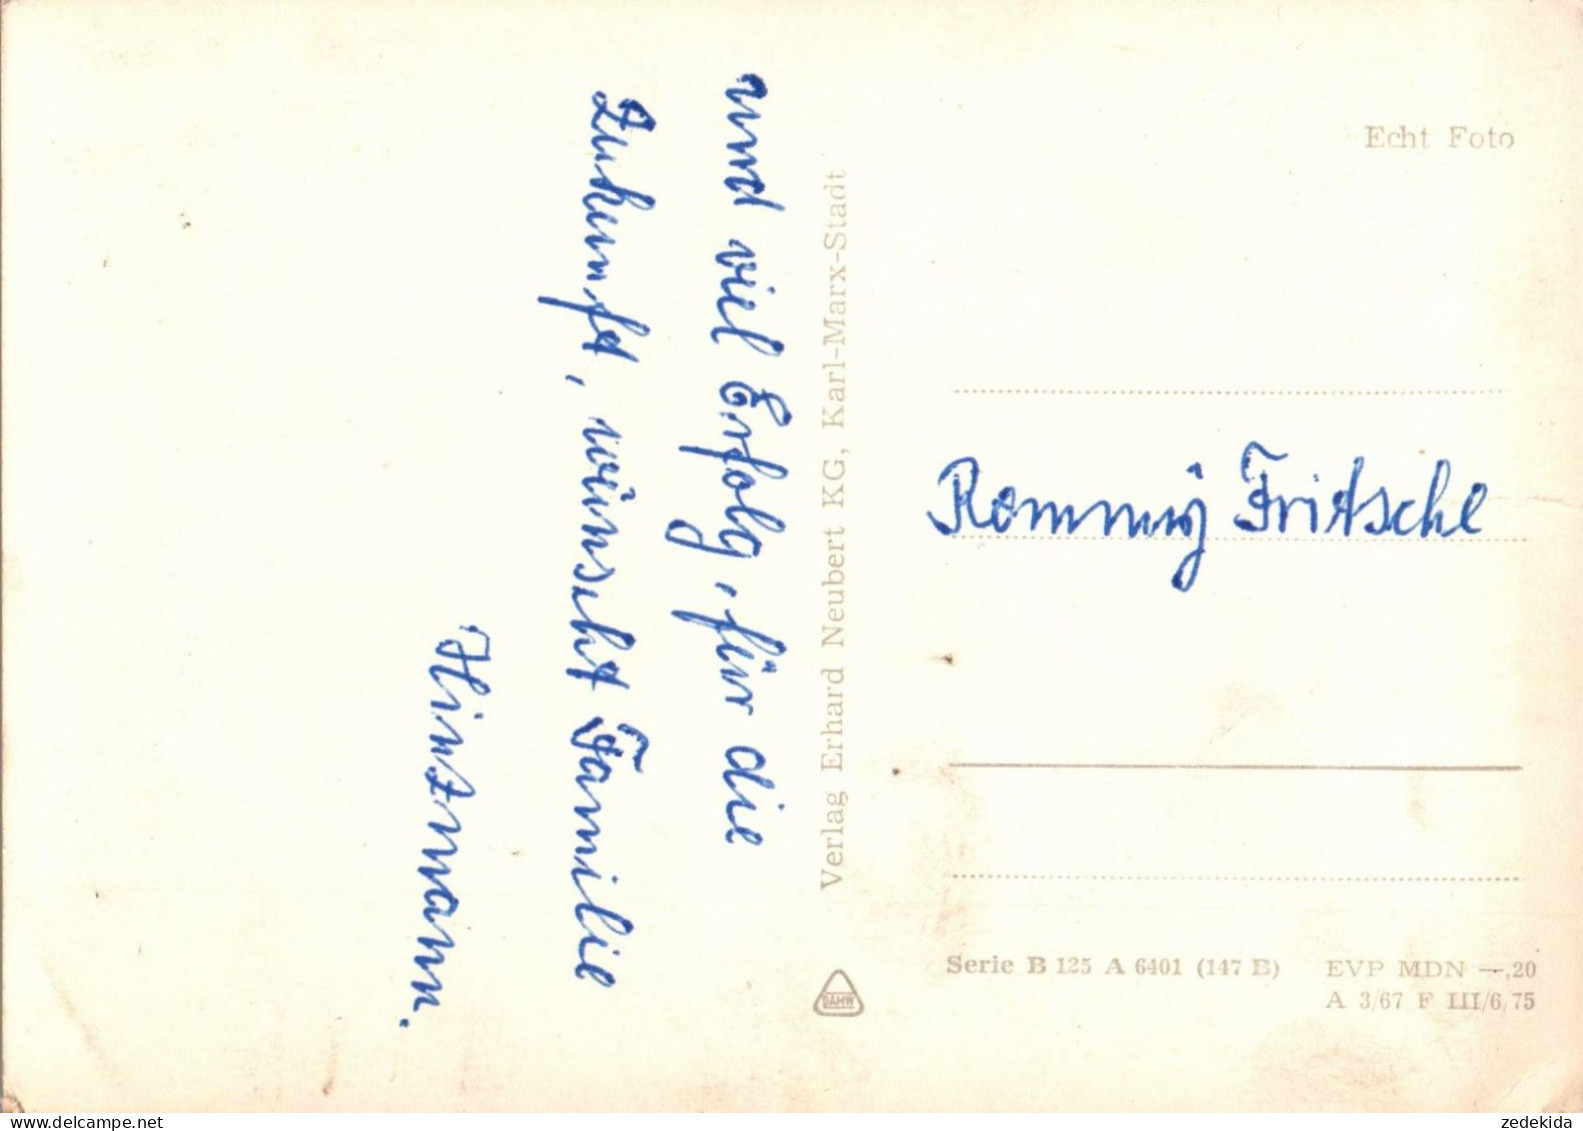 und viel Erfolg, für die
Zukunft, wünscht Familie
Hintzmann.
Verlag Erhard Neubert KG, Karl-Marx-Stadt
Echt Foto
Rommy Fritsche
DAMW
Serie B 125 A 6401 (147 B)
EVP MDN —,20
A 3/67 F III/6/75
www.delcampe.net
zedekida